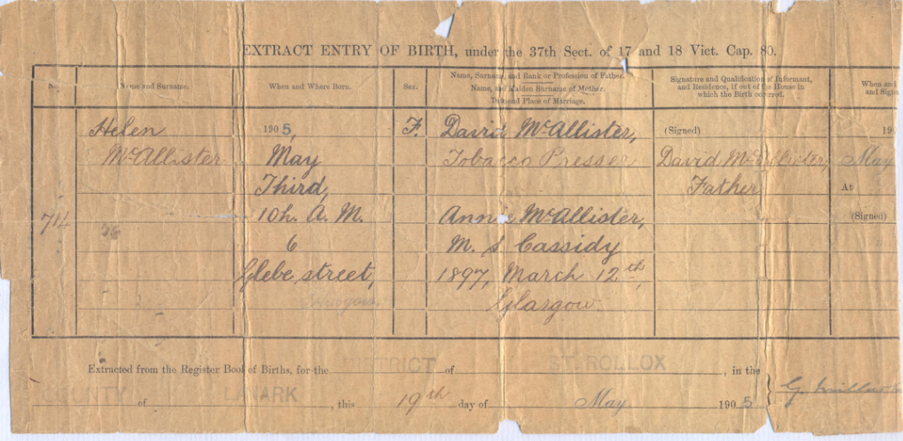 EXTRACT ENTRY OF BIRTH, under the 37th Sect. of 17 and 18 Vict. Cap. 80.
No.
Name and Surname.
When and Where Born.
Sex.
Name, Surname, and Rank or Profession of Father.
Name, and Maiden Surname of Mother.
Date and Place of Marriage.
Signature and Qualification of Informant,
and Residence, if out of the House in
which the Birth occurred.
When and
and
74
Helen
McAllister
1905,
May
Third,
10h. A. M.
6
Glebe street,
Glasgow
F.
David McAllister,
Tobacco Presser
Annie McAllister,
M. S. Cassidy
1897, March 12th,
Glasgow.
(Signed)
David McAllister,
Father
190
May
At
(Signed)
Extracted from the Register Book of Births, for the DISTRICT of ST. ROLLOX, in the
COUNTY of LANARK, this 19th day of May 1905